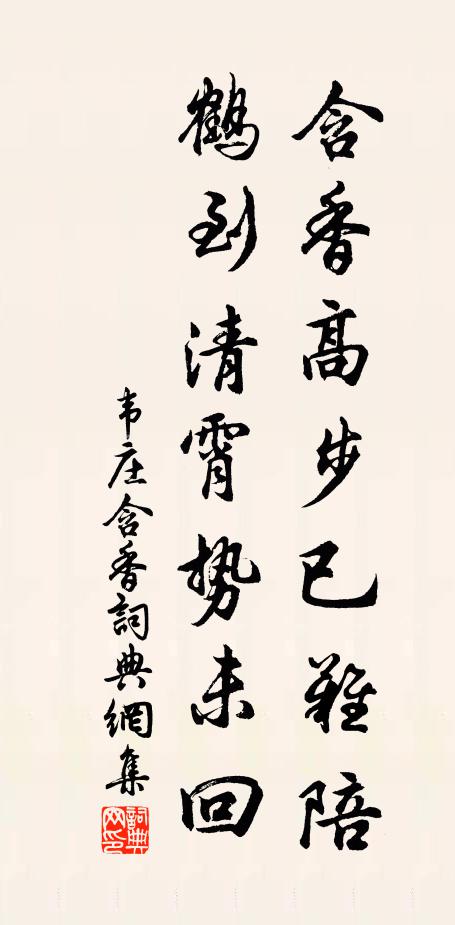 含香高步已難陪
鶴到清霄勢未回
韦庄含香詞典網集
詞典網印